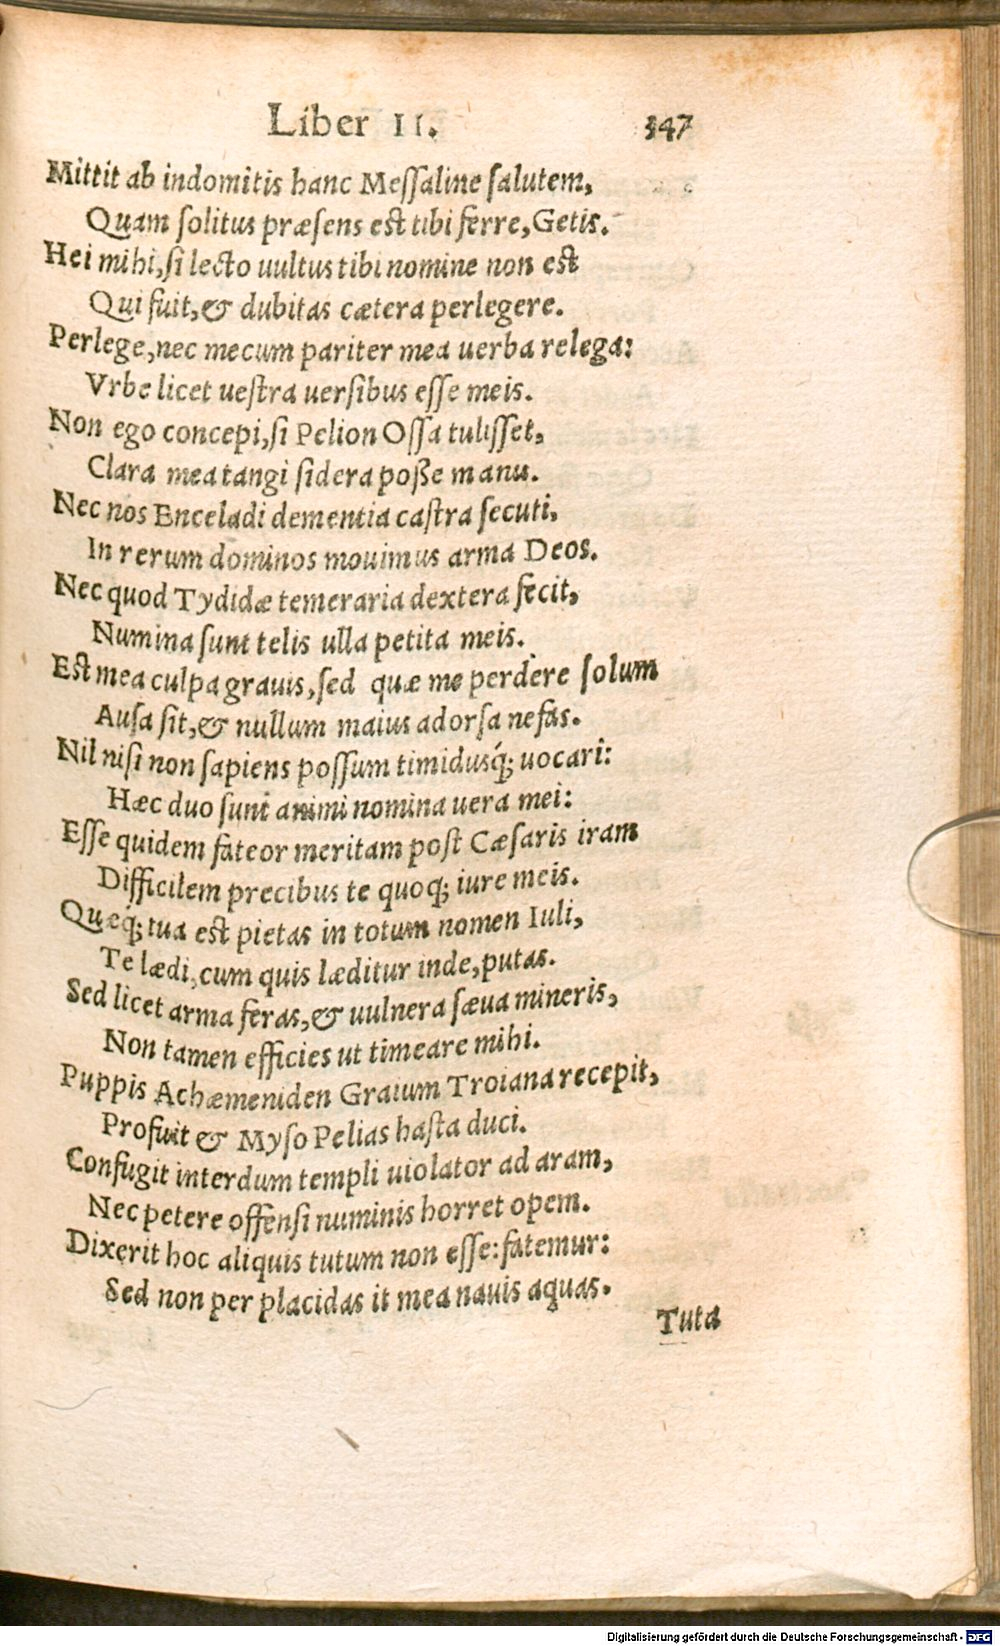 Liber II. 347
Mittit ab indomitis hanc Messaline salutem,
Quam solitus præsens est tibi ferre, Getis.
Hei mihi, si lecto uultus tibi nomine non est
Qui fuit, & dubitas cætera perlegere.
Perlege, nec mecum pariter mea uerba relega:
Vrbe licet uestra uersibus esse meis.
Non ego concepi, si Pelion Ossa tulisset,
Clara mea tangi sidera poße manu.
Nec nos Enceladi dementia castra secuti,
In rerum dominos mouimus arma Deos.
Nec quod Tydidæ temeraria dextera fecit,
Numina sunt telis ulla petita meis.
Est mea culpa grauis, sed quæ me perdere solum
Ausa sit, & nullum maius adorsa nefas.
Nil nisi non sapiens possum timidusq́; uocari:
Hæc duo sunt animi nomina uera mei:
Esse quidem fateor meritam post Cæsaris iram
Difficilem precibus te quoq; iure meis.
Quæq́; tua est pietas in totum nomen Iuli,
Te lædi, cum quis læditur inde, putas.
Sed licet arma feras, & uulnera sæua mineris,
Non tamen efficies ut timeare mihi.
Puppis Achæmeniden Graium Troiana recepit,
Profuit & Myso Pelias hasta duci.
Confugit interdum templi uiolator ad aram,
Nec petere offensi numinis horret opem.
Dixerit hoc aliquis tutum non esse: fatemur:
Sed non per placidas it mea nauis aquas.
Tuta
Digitalisierung gefördert durch die Deutsche Forschungsgemeinschaft - DFG